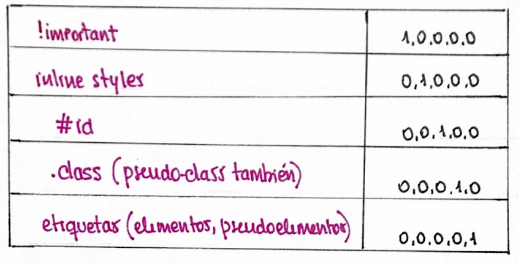 !important 1,0,0,0,0
inline styles 0,1,0,0,0
#id 0,0,1,0,0
.class (pseudo-class también) 0,0,0,1,0
etiquetas (elementos, pseudoelementos) 0,0,0,0,1